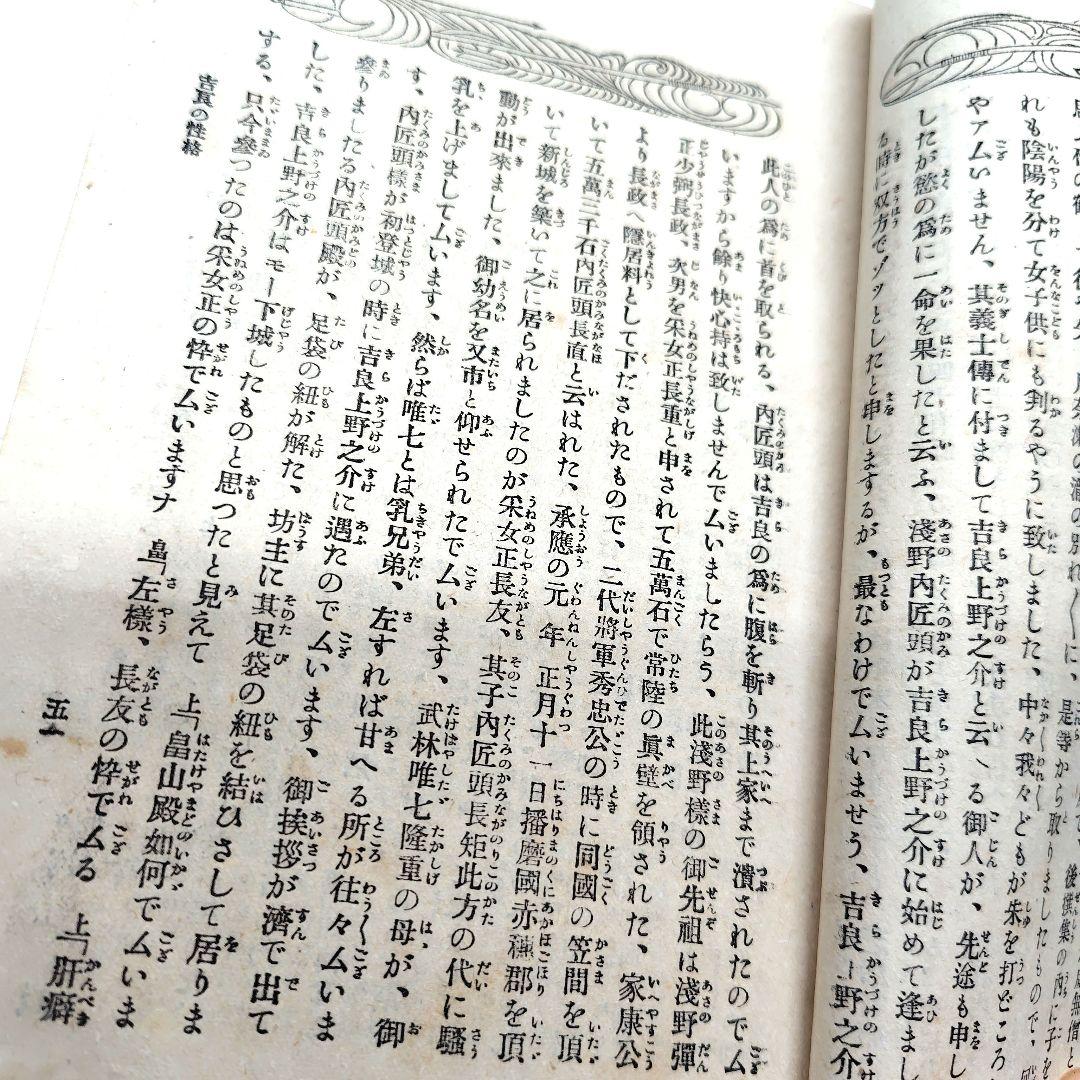 れも陰陽を分て女子供にも判るやうに致しました、中々我々どもが朱を打どころ
やアムいません、其義士傳に付まして吉良上野之介と云ゝる御人が、先途も申し
したが慾の爲に一命を果したと云ふ、淺野内匠頭が吉良上野之介に始めて逢まし
る時に双方でゾッとしたと申しまするが、最なわけでムいませう、吉良上野之介
此人の爲に首を取られる、内匠頭は吉良の爲に腹を斬り其上家まで潰されたのでム
いますから餘り快心持は致しませんでムいましたらう、此淺野樣の御先祖は淺野彈
正少弼長政、次男を采女正長重と申されて五萬石で常陸の眞壁を領された、家康公
より長政へ隱居料として下だされたもので、二代將軍秀忠公の時に同國の笠間を頂
いて五萬三千石内匠頭長直と云はれた、承應の元年正月十一日播磨國赤穗郡を頂
いて新城を築いて之に居られましたのが采女正長友、其子内匠頭長矩此方の代に騷
動が出來ました、御幼名を又市と仰せられたでムいます、武林唯七隆重の母が、御
乳を上げましてムいます、然らば唯七とは乳兄弟、左すれば甘へる所が往々ムいま
す、内匠頭樣が初登城の時に吉良上野之介に遇たのでムいます、御挨拶が濟で出て
參りましたる内匠頭殿が、足袋の紐が解た、坊主に其足袋の紐を結ひさして居りま
した、吉良上野之介はモー下城したものと思つたと見えて　上「畠山殿如何でムいま
する、只今參つたのは采女正の悴でムいますナ　畠「左樣、長友の悴でムる　上「肝癪
吉良の性格
五